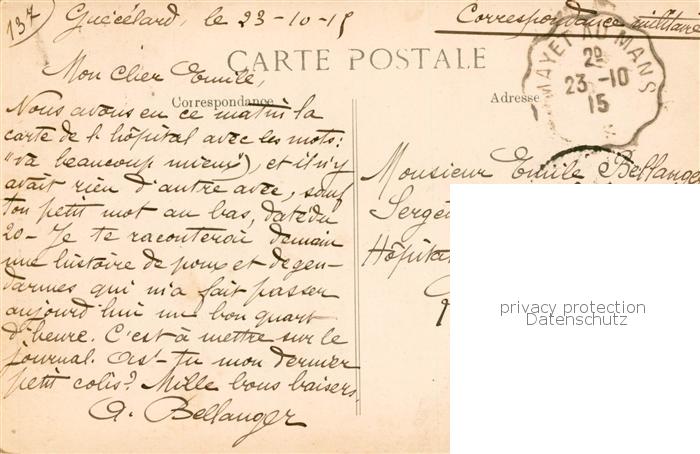 137
Guécélard, le 23-10-15
Correspondance militaire
CARTE POSTALE
MAYET AU MANS
2°
23-10
15
Mon cher Emile,
Correspondance
Adresse
Nous avons eu ce matin la
carte de l'hôpital avec les mots:
"va beaucoup mieux"), et il n'y
avait rien d'autre avec, sauf
ton petit mot au bas, daté du
20- Je te raconterai demain
une histoire de poux et de gen-
darmes qui m'a fait passer
aujourd'hui un bon quart
d'heure. C'est à mettre sur le
journal. As-tu mon dernier
petit colis? Mille bons baisers.
A. Bellanger
Monsieur Emile Bellanger
Serge
Hôpital
privacy protection
Datenschutz